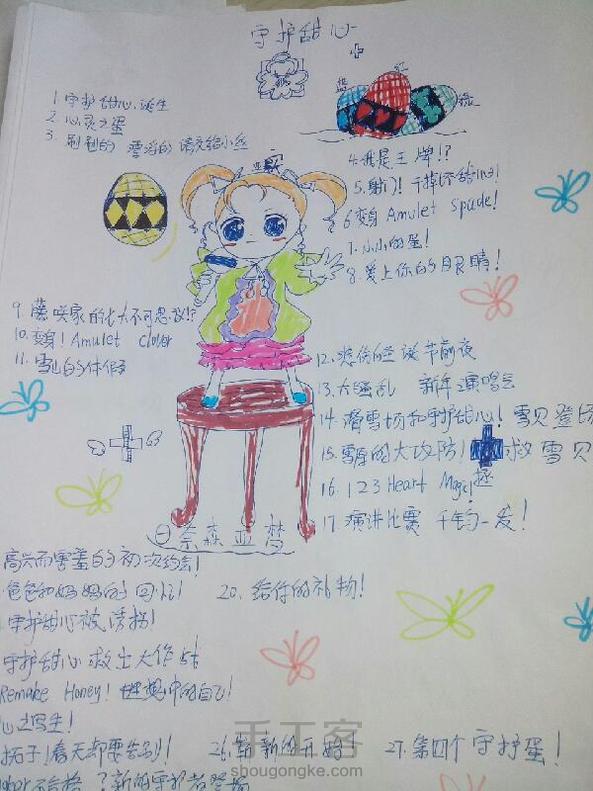 守护甜心
蓝
红
绿
1. 守护甜心诞生
2. 心灵之蛋
3.
4. 我是王牌!?
5. 射门!
6 变身 Amulet Spade!
7. 小小的蛋!
8. 爱上你的眼睛!
9. 藤咲家的七大不可思议!?
10. 变身! Amulet clover
11. 雪山的休假
12. 悲伤的圣诞节前夜
13. 大骚乱 新年演唱会
14. 滑雪场和守护甜心! 雪贝登场
15. 雪原的大攻防! 救雪贝
16. 123 Heart Magic!
17. 演讲比赛 千钧一发!
日奈森亚梦
高兴而害羞的初次约会!
爸爸和妈妈的回忆! 20. 给你的礼物!
守护甜心被诱拐!
守护甜心救出大作战
Remake Honey! 想中的自己!
心之写生!
抚子! 春天却要告别! 26. 新的开始 27. 第四个守护蛋!
新的守护者登场
手工客
shougongke.com